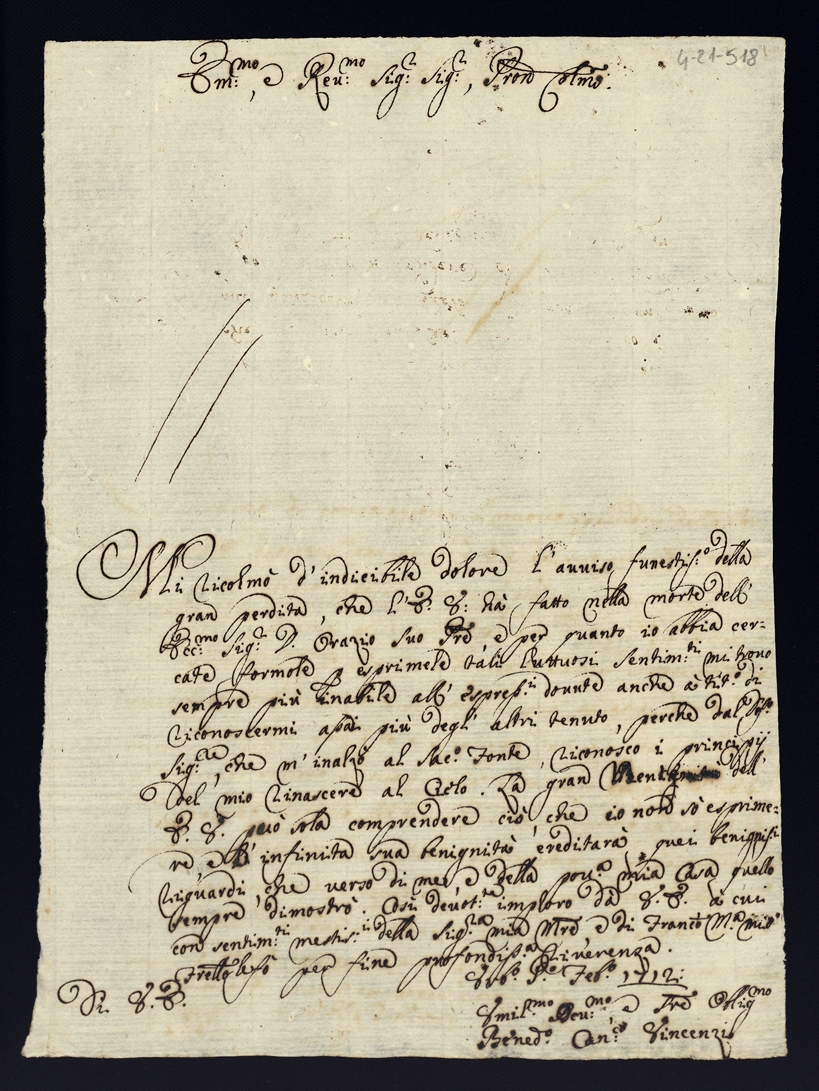 4-21-518
Em:mo, e Reu:mo Sig:r Sig:r, Pron Colmo:
Mi ricolmò d'indicibile dolore l'auuiso funestiss:o della
gran perdita, che l'E: V: hà fatto nella morte dell'
Ecc:mo Sig:r D. Orazio suo Pre e per quanto io abbia cer-
cate formole p esprimele tali luttuosi sentim:ti mi trouo
sempre più inabile all' espress:i douute anche à tit:o di
riconoscermi assai più degl' altri tenuto, perche dal
Sig:re, che m'inalzò al Sac:o Fonte, riconosco i principij
del mio rinascere al Cielo. La gran dell'
E. V. può sola comprendere ciò, che io non sò esprime=
re e l' infinita sua benignità erediterà quei benigniss:i
riguardi, che verso di me, e della pou:a mia Casa quello
sempre dimostrò. Così deuot:te imploro dà V. E. à cui
con sentim:ti mestiss:i della Sig:ra mia Mre e di Franco M:a mio
Frello fò per fine profondiss:a riuerenza.
Di V. E.
P:o Feb:o 1712:
Vmil:mo Deu:mo, e Oblig:mo
Bened:o Can:co Vincenzi